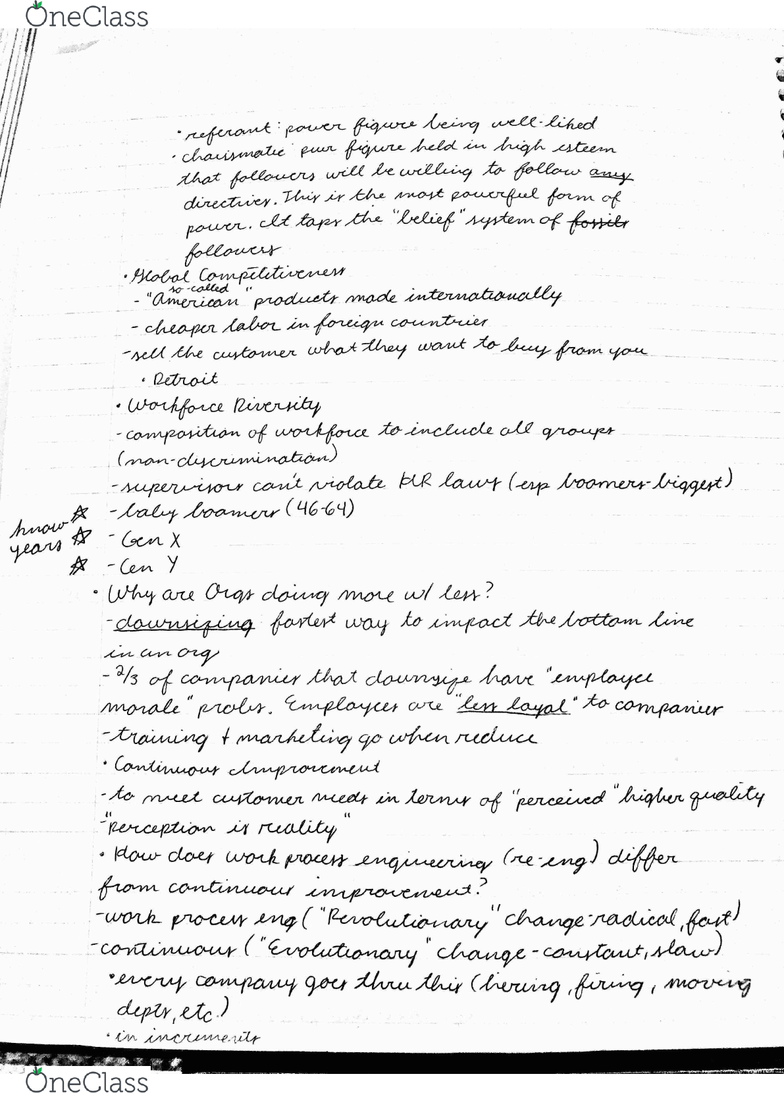 OneClass
• referant: power figure being well-liked
• charismatic: pwr figure held in high esteem
that followers will be willing to follow any
directives. This is the most powerful form of
power. It taps the "belief" system of fossils
followers
• Global Competitiveness
so-called
- "American" products made internationally
- cheaper labor in foreign countries
- sell the customer what they want to buy from you
• Detroit
• Workforce Diversity
- composition of workforce to include all groups
(non-discrimination)
- supervisors can't violate HR laws (esp boomers-biggest)
know ☆ - baby boomers (46-64)
years ☆ - Gen X
☆ - Gen Y
• Why are Orgs doing more w/ less?
- downsizing fastest way to impact the bottom line
in an org
- 2/3 of companies that downsize have "employee
morale" probs. Employees are "less loyal" to companies
- training + marketing go when reduce
• Continuous Improvement
- to meet customer needs in terms of "perceived" higher quality
- "perception is reality"
• How does work process engineering (re-eng) differ
from continuous improvement?
- work process eng ("Revolutionary" change-radical, fast)
- continuous ("Evolutionary" change - constant, slow)
• every company goes thru this (hiering, firing, moving
depts, etc.)
• in increments
OneClass